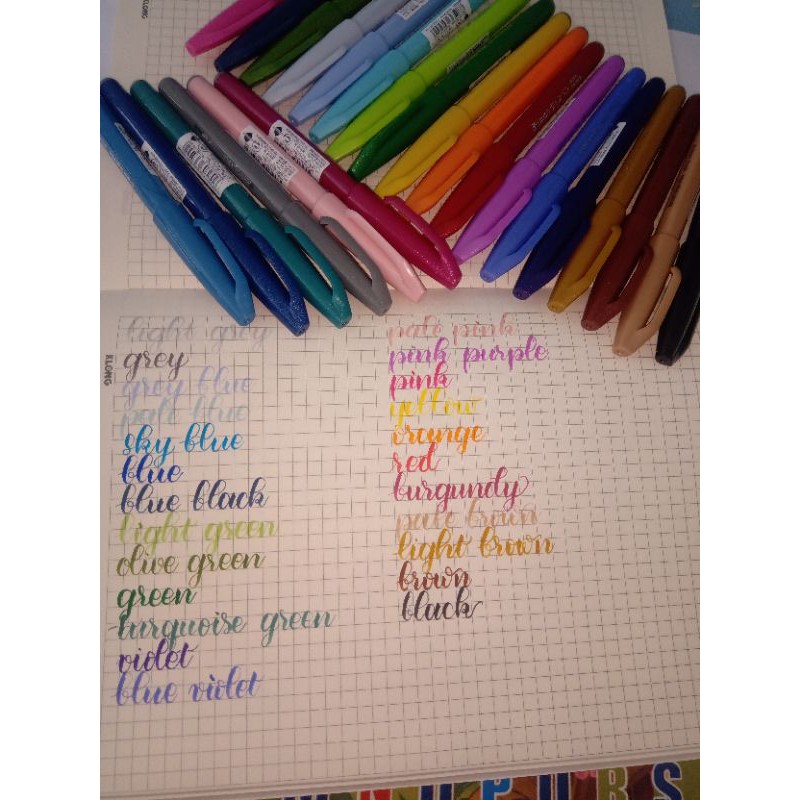 KLONG
KLONG
light grey
grey
grey blue
pale blue
sky blue
blue
blue black
light green
olive green
green
turquoise green
violet
blue violet
pale pink
pink purple
pink
yellow
orange
red
burgundy
pale brown
light brown
brown
black